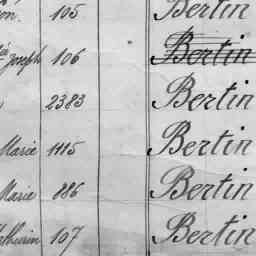 on. 105 Bertin
Joseph 106 Bertin
2383 Bertin
Marie 1115 Bertin
Marie 886 Bertin
107 Bertin